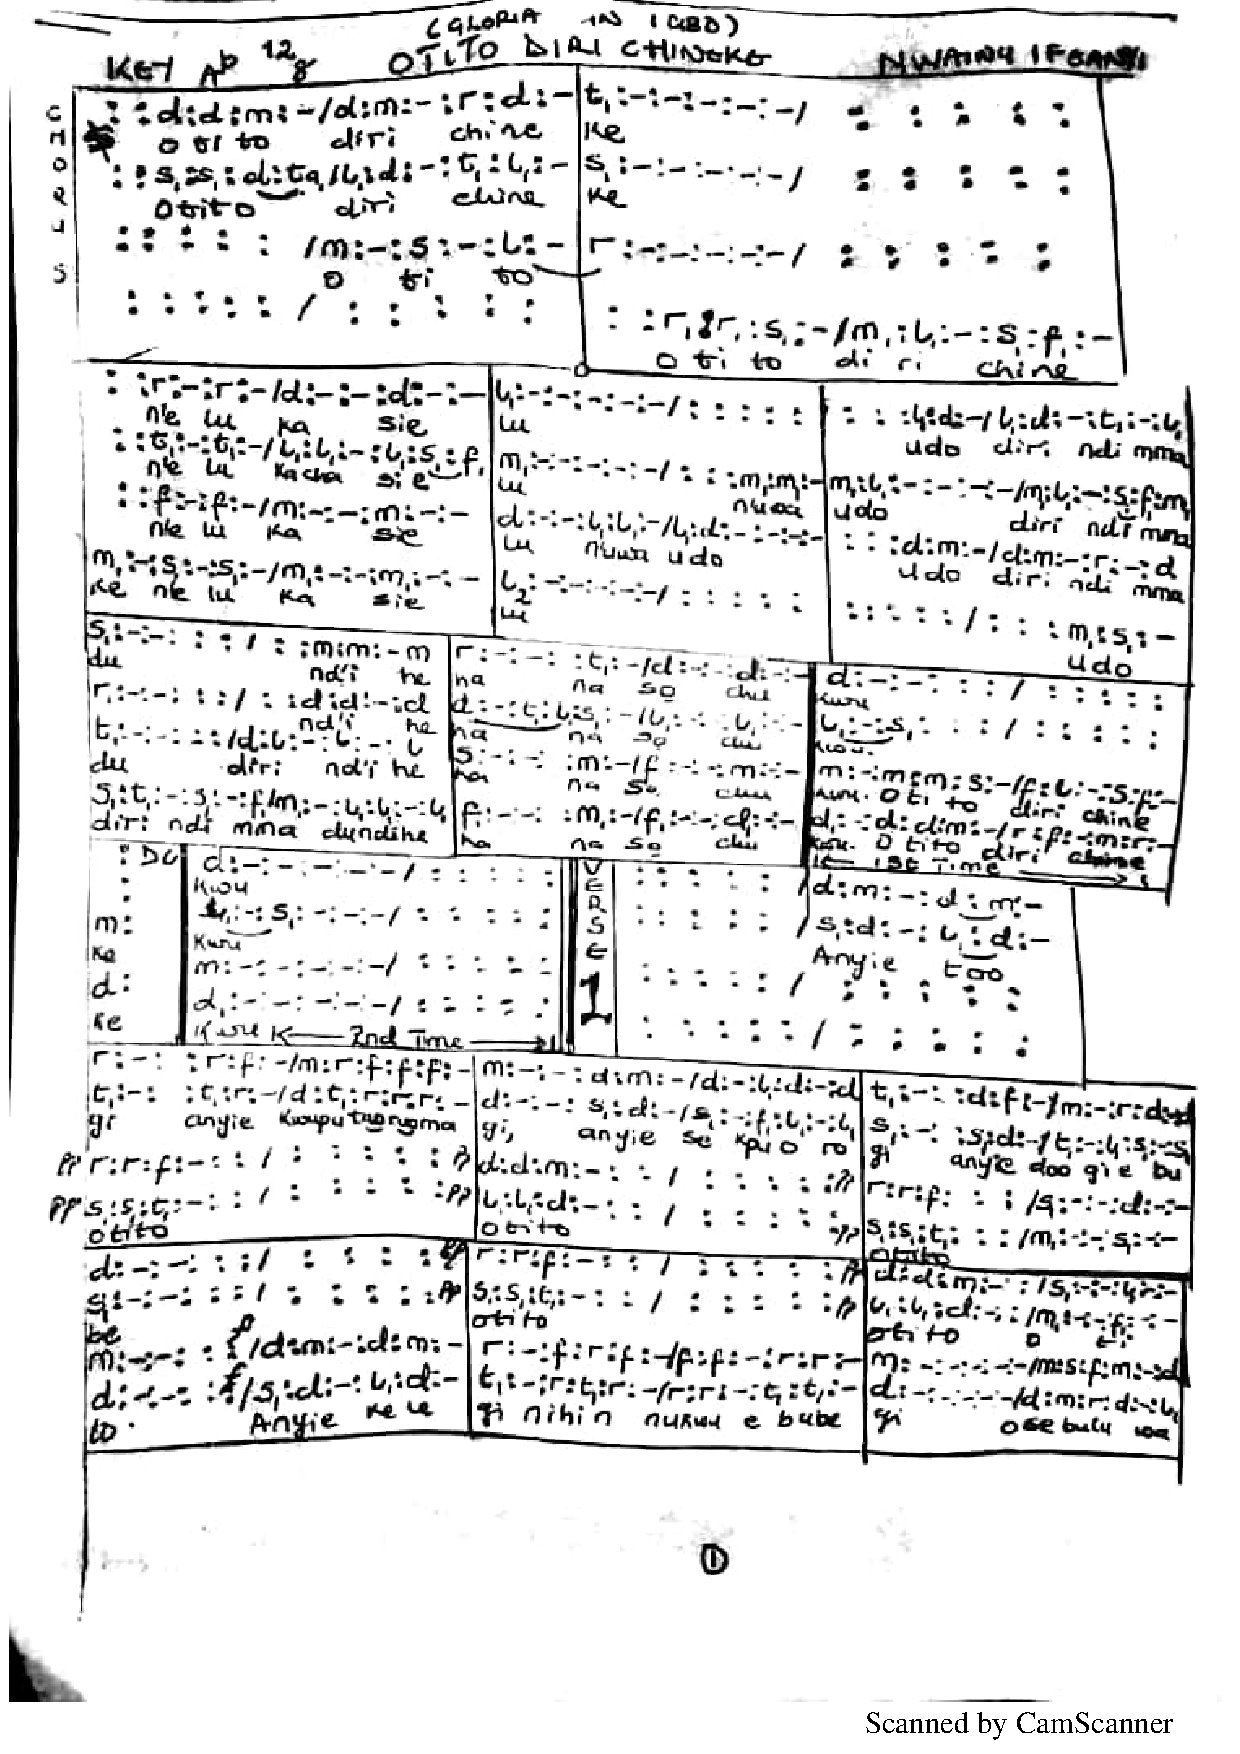 (GLORIA IN IGBO)
KEY Ab 12/8 OTITO DIRI CHINEKE
CHORUS
: :d:d:m:-/d:m:-:r:d:- t,:-:-:-:-:-/ : : : : :
O ti to diri chine ke
: :s,:s,:d:ta,/l,:d:-:t,:l,:- s,:-:-:-:-:-/ : : : : :
Otito diri chine ke
: : : : : /m:-:s:-:l:- r:-:-:-:-:-/ : : : : :
O ti to
: : : : : / : : : : : : :r,:r,:s,:-/m,:l,:-:s,:f,:-
O ti to di ri chine
: :r:-:r:-/d:-:-:d:-:- l,:-:-:-:-:-/ : : : : : : : :l,:d:-/l,:d:-:t,:-:l,
n'e lu ka sie lu udo diri ndi mma
: :t,:-:t,:-/l,:l,:-:l,:s,:f, m,:-:-:-:-:-/ : : :m,:m,:- m,:l,:-:-:-:-/m,:l,:-:s,:f,:m,
n'e lu kacha sie lu n'uwa udo diri ndi mma
: :f:-:f:-/m:-:-:m:-:- d:-:-:l,:l,:-/l,:d:-:-:-:- : : :d:m:-/d:m:-:r:-:d
n'e lu ka sie lu n'uwa udo udo diri ndi mma
m,:-:s,:-:s,:-/m,:-:-:m,:-:- l2:-:-:-:-:-/ : : : : : : : : : : / : : : :m,:s,:-
ke ne lu ka sie lu udo
s,:-:-: : : / : : :m:m:-:m r:-:-: :t,:-/d:-:-:d:-:- d:-:-: : : / : : : : :
du nd'i he na na so chu kwu
r,:-:-: : : / : :d:d:-:d d:-:t,:l,:s,:-/l,:-:-:l,:-:- l,:-:s, : : / : : : : :
nd'i he na na so chu kwu
t,:-:-: : : /d:l:-:l:-:l s:-:-: :m:-/f:-:-:m:-:- m:-:m:m:s:-/f:l:-:s:f:-
du diri nd'i he ha na so chu kwu. O ti to diri chine
s,:t,:-:s,:-:f,/m,:-:l,:l,:-:l, f,:-:-: :m,:-/f,:-:-:d,:-:- d,:-:d:d:m:-/r:f:-:m:r:-
diri ndi mma dundihe ha na so chu kwu. O tito diri chine
1st Time
: DC d:-:-:-:-:-/ : : : : : VERSE 1 : : : : : /d:m:-:d:m:-
Kwu
l,:-:s,:-:-:-/ : : : : : : : : : : /s,:d:-:l,:d:-
Kwu Anyie too
m: m:-:-:-:-:-/ : : : : : : : : : : / : : : : :
ke
d: d,:-:-:-:-:-/ : : : : : : : : : : / : : : : :
ke Kwu 2nd Time
r:-: :r:f:-/m:r:f:f:f:- m:-:-:d:m:-/d:-:l,:d:-:d t,:-:-:d:f:-/m:-:r:d:-:d
t,:-: :t,:r:-/d:t,:r:r:r:- d:-:-:s,:d:-/s,:-:f,:l,:-:l, s,:-:-:s,:d:-/t,:-:l,:s,:-:s,
gi anyie gi, anyie se kpu o ro gi anyie doo gi e bu
pp r:r:f:-: : / : : : : : pp d:d:m:-: : / : : : : : pp r:r:f: : : /s,:-:-:d:-:-
pp s,:s,:t,:-: : / : : : : : pp l,:l,:d:-: : / : : : : : pp s,:s,:t,: : : /m,:-:-:s,:-:-
otito otito otito
d:-:-: : : / : : : : : pp r:r:f:-: : / : : : : : pp d:d:m:-: : /s,:-:-:l,:-:-
s,:-:-: : : / : : : : : pp s,:s,:t,:-: : / : : : : : pp l,:l,:d:-: : /m,:-:-:f,:-:-
be otito otito O ti
m:-:-: : : f /d:m:-:d:m:- r:-:f:r:f:-/f:f:-:r:r:- m:-:-:-:-:-/m:s:f:m:-:d
d:-:-: : : f /s,:d:-:l,:d:- t,:-:r:t,:r:-/r:r:-:t,:t,:- d:-:-:-:-:-/d:m:r:d:-:l,
to. Anyie ke le gi nihin nukwu e bube gi osebulu wa
1
Scanned by CamScanner